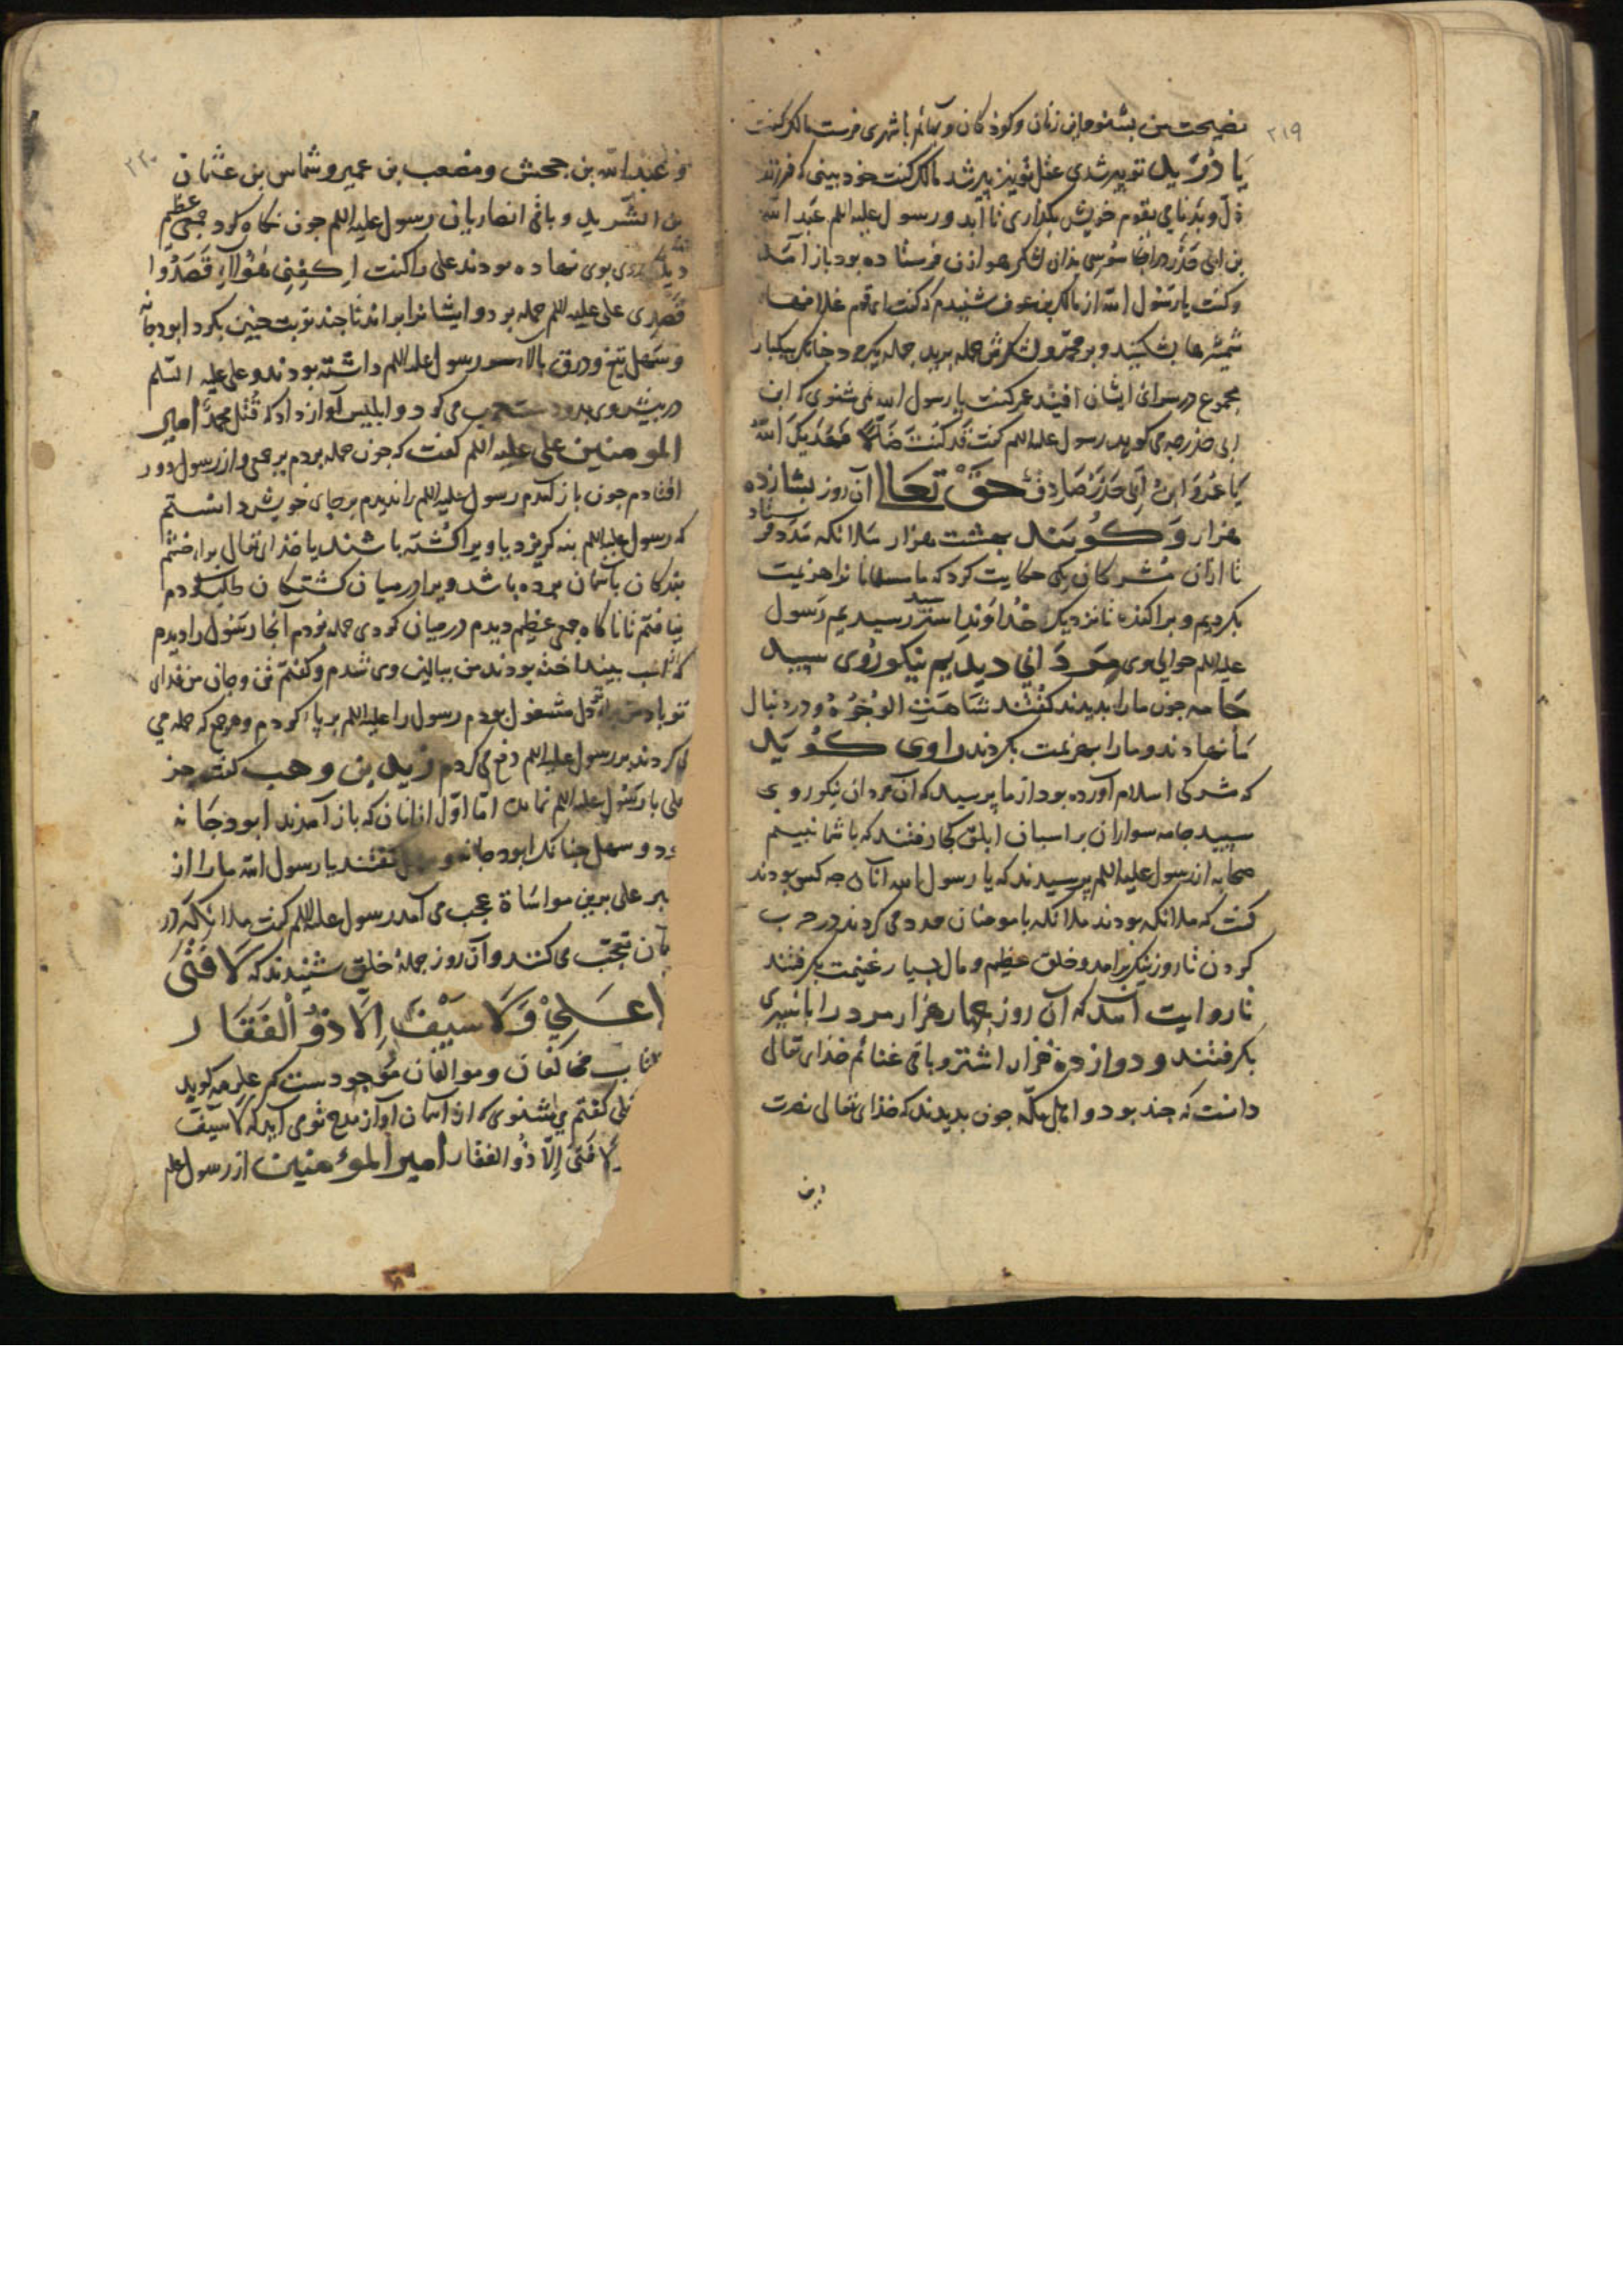 ۲۱۹
نصیحت من بشنو و این زنان و کودکان و بهائم با شهری فرست مالک گفت
یا دُرَید تو پیر شدی عقل تو نیز پیر شد مالک گفت خود بینی که فرزند
ذلّ و بدنامی بقوم خویش بگذاری تا آید و رسول علیه السلم عبد الله
بن ابی حَدْرَد را بجاسوسی بذان لشکر هوازن فرستاده بود باز آمد
و گفت یا رسول الله از مالک بن عوف شنیدم که گفت ای قوم غلافهاء
شمشیرها بشکنید و بر محمد و لشکرش حمله برید حمله یک مرد چنانک بیکبار
مجموع در سواد ایشان افتید عمر گفت یا رسول الله نمی شنوی که ابن
ابی حدرد چه می کوید رسول علیه السلم گفت قَد کُنتَ ضَالًّا فَهَدیکَ اللّهُ
یَا عُمَرُ وَ ابنُ اَبی حَدْرَد صَادِقٌ حقّ تَعَالٰی آن روز شانزده
هزار وَ کویند بهشت هزار ملائکه بمدد فرستاد
تا ازان مُشرکان یکی حکایت کرد که ما مسلمانانرا هزیمت
بکردیم و پراکنده تا نزدیک خُداوند استر سپید رسیدیم رَسول
علیه السلم حوالی وی مردانی دیدیم نیکو رُوی سپید
جَامه چون ما را بدیدند کفتند شَاهَتِ الوُجُوهُ و در دنبال
ما نهادند و ما را بهزیمت بکردند راوی کُوید
که مشرکی اسلام آورده بود از ما پرسید که آن مردان نیکو روی
سپید جامه سواران بر اسبان ابلق کجا رفتند که با شما نبینیم
صحابه از رسول علیه السلم پرسیدند که یا رسول الله آنان چه کس بودند
گفت که ملائکه بودند ملائکه با مومنان مدد می کردند در حرب
کردن تا روز نیک برآمد و خلق عظیم و مال بسیار غنیمت بکرفتند
تا روایت آمد که آن روز چهار هزار مرد را با سیری
بکرفتند و دوازده هزار اشتر و باقی غنائم خدای تعالی
دانست که چند بود و اهل مکّه چون بدیدند که خذای تعالی نصرت
۲۲۰
و عبد الله بن جحش و مصعب بن عمیر و شماس بن عثمان
بن الشّرید و باقی انصاریان رسول علیه السلم چون نکاه کرد جمعی عظیم
دید روی بوی نهاده بودند علی را گفت اِکفِنِی هٰؤُلاءِ قَصَدُوا
قَصْدِی علی علیه السلم حمله برد و ایشانرا براند تا چند نوبت چنین بکرد ابو دجانه
و سَهل تیغ و درق بالاء سر رسول علیه السلم داشته بودند و علی علیه السّلم
در پیش وی بدو دست حرب می کرد و ابلیس آواز داد که قُتِلَ محمّدٌ امیر
المومنین علی علیه السلم کفت که چون حمله بردم بر جمعی و از رسول دور
افتادم چون باز آمدم رسول علیه السلم را ندیدم بر جای خویش دانستم
که رسول علیه السلم بنه کریزد یا ویرا کُشته باشند یا خذای تعالی برای خشم
بندکان بآسمان برده باشد ویرا در میان کشتکان طلب کردم
نیافتم تا ناکاه جمعی عظیم دیدم در میان کردی حمله بردم آنجا رَسُول را دیدم
که از اسب بینداخته بودند من ببالین وی شدم و کفتم تن و جان من فدای
تو باد من دل مشغول بودم رسول را علیه السلم بر پا کردم و هر جمع که حمله می
کردند بر رسول علیه السلم دفع می کردم زید بن وهب کفت جز
علی با رسول علیه السلم نماند امّا اوّل از اینان که باز آمدند ابو دجَانه
بود و سهل چنانک ابو دجانه و سهل کفتند یا رسول الله ما را از
صبر علی برین مواسَاة عجب می آمد رسول علیه السلم گفت ملائکه در
آسمان تعجّب می کنند و آن روز جملهٔ خلق شنیدند که لَا فَتٰی
اِلَّا عَلِیٌّ وَ لَا سَیْفَ اِلَّا ذُو الْفَقَارِ
کتاب مخالفان و موالفان موجودست
علی کفتم می شنوی که از آسمان آواز مدح توی آید که لا سَیفَ
لا فَتیٰ اِلّا ذُو الفقار امیر المؤمنین از رسول علیه